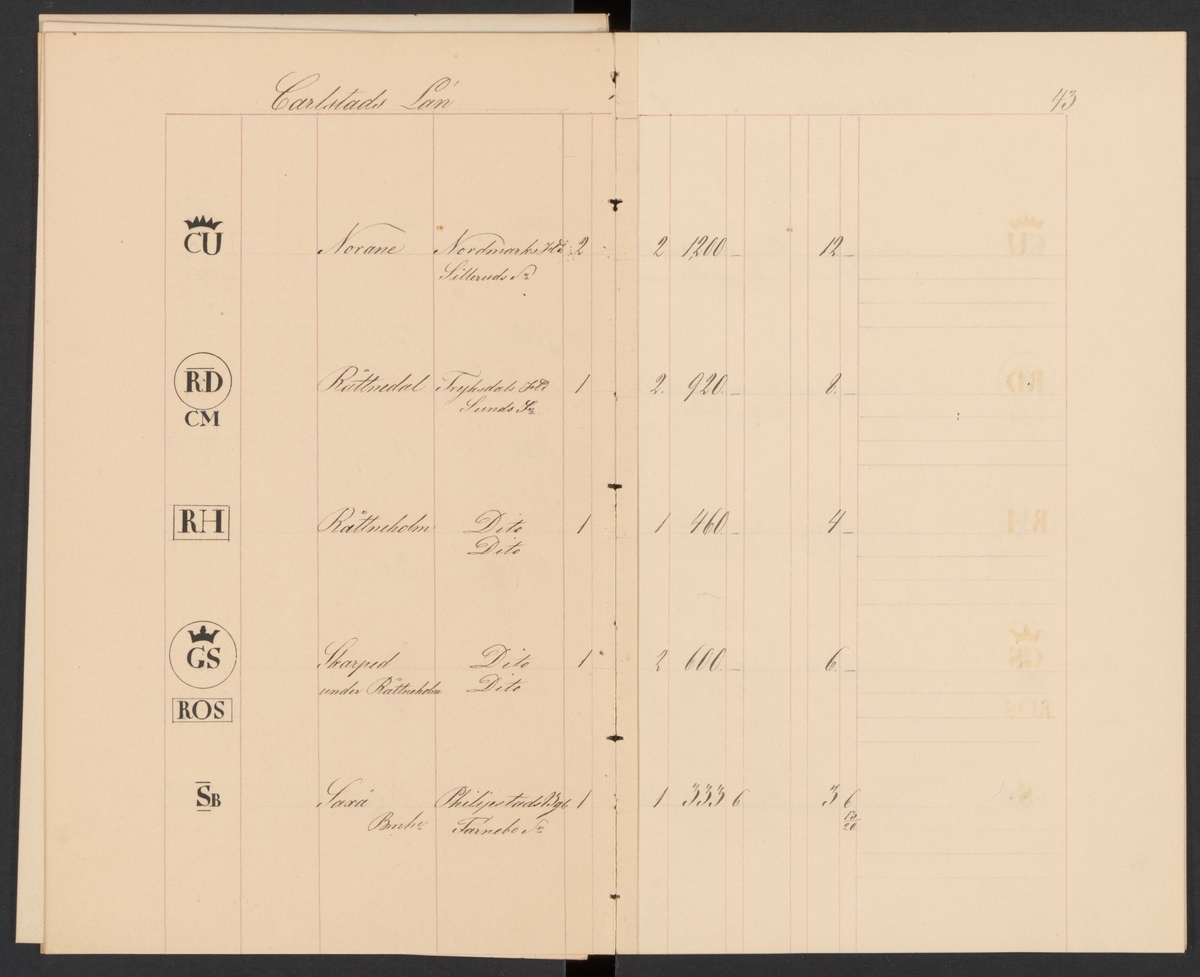 Carlstads Län
43
CU Norane Nordmarks Hd 2 2 1200 – 12 –
Silleruds Sn
RD Rättnedal Fryksdals Hd 1 2 920 – 8 –
CM Sunds Sn
RH Rättneholm Dito 1 1 460 – 4 –
Dito
GS Skarped Dito 1 2 600 – 6 –
under Rättneholm Dito
ROS
SB Saxå Philipstads Bgl 1 1 333 6 3 6
Färnebo Sn